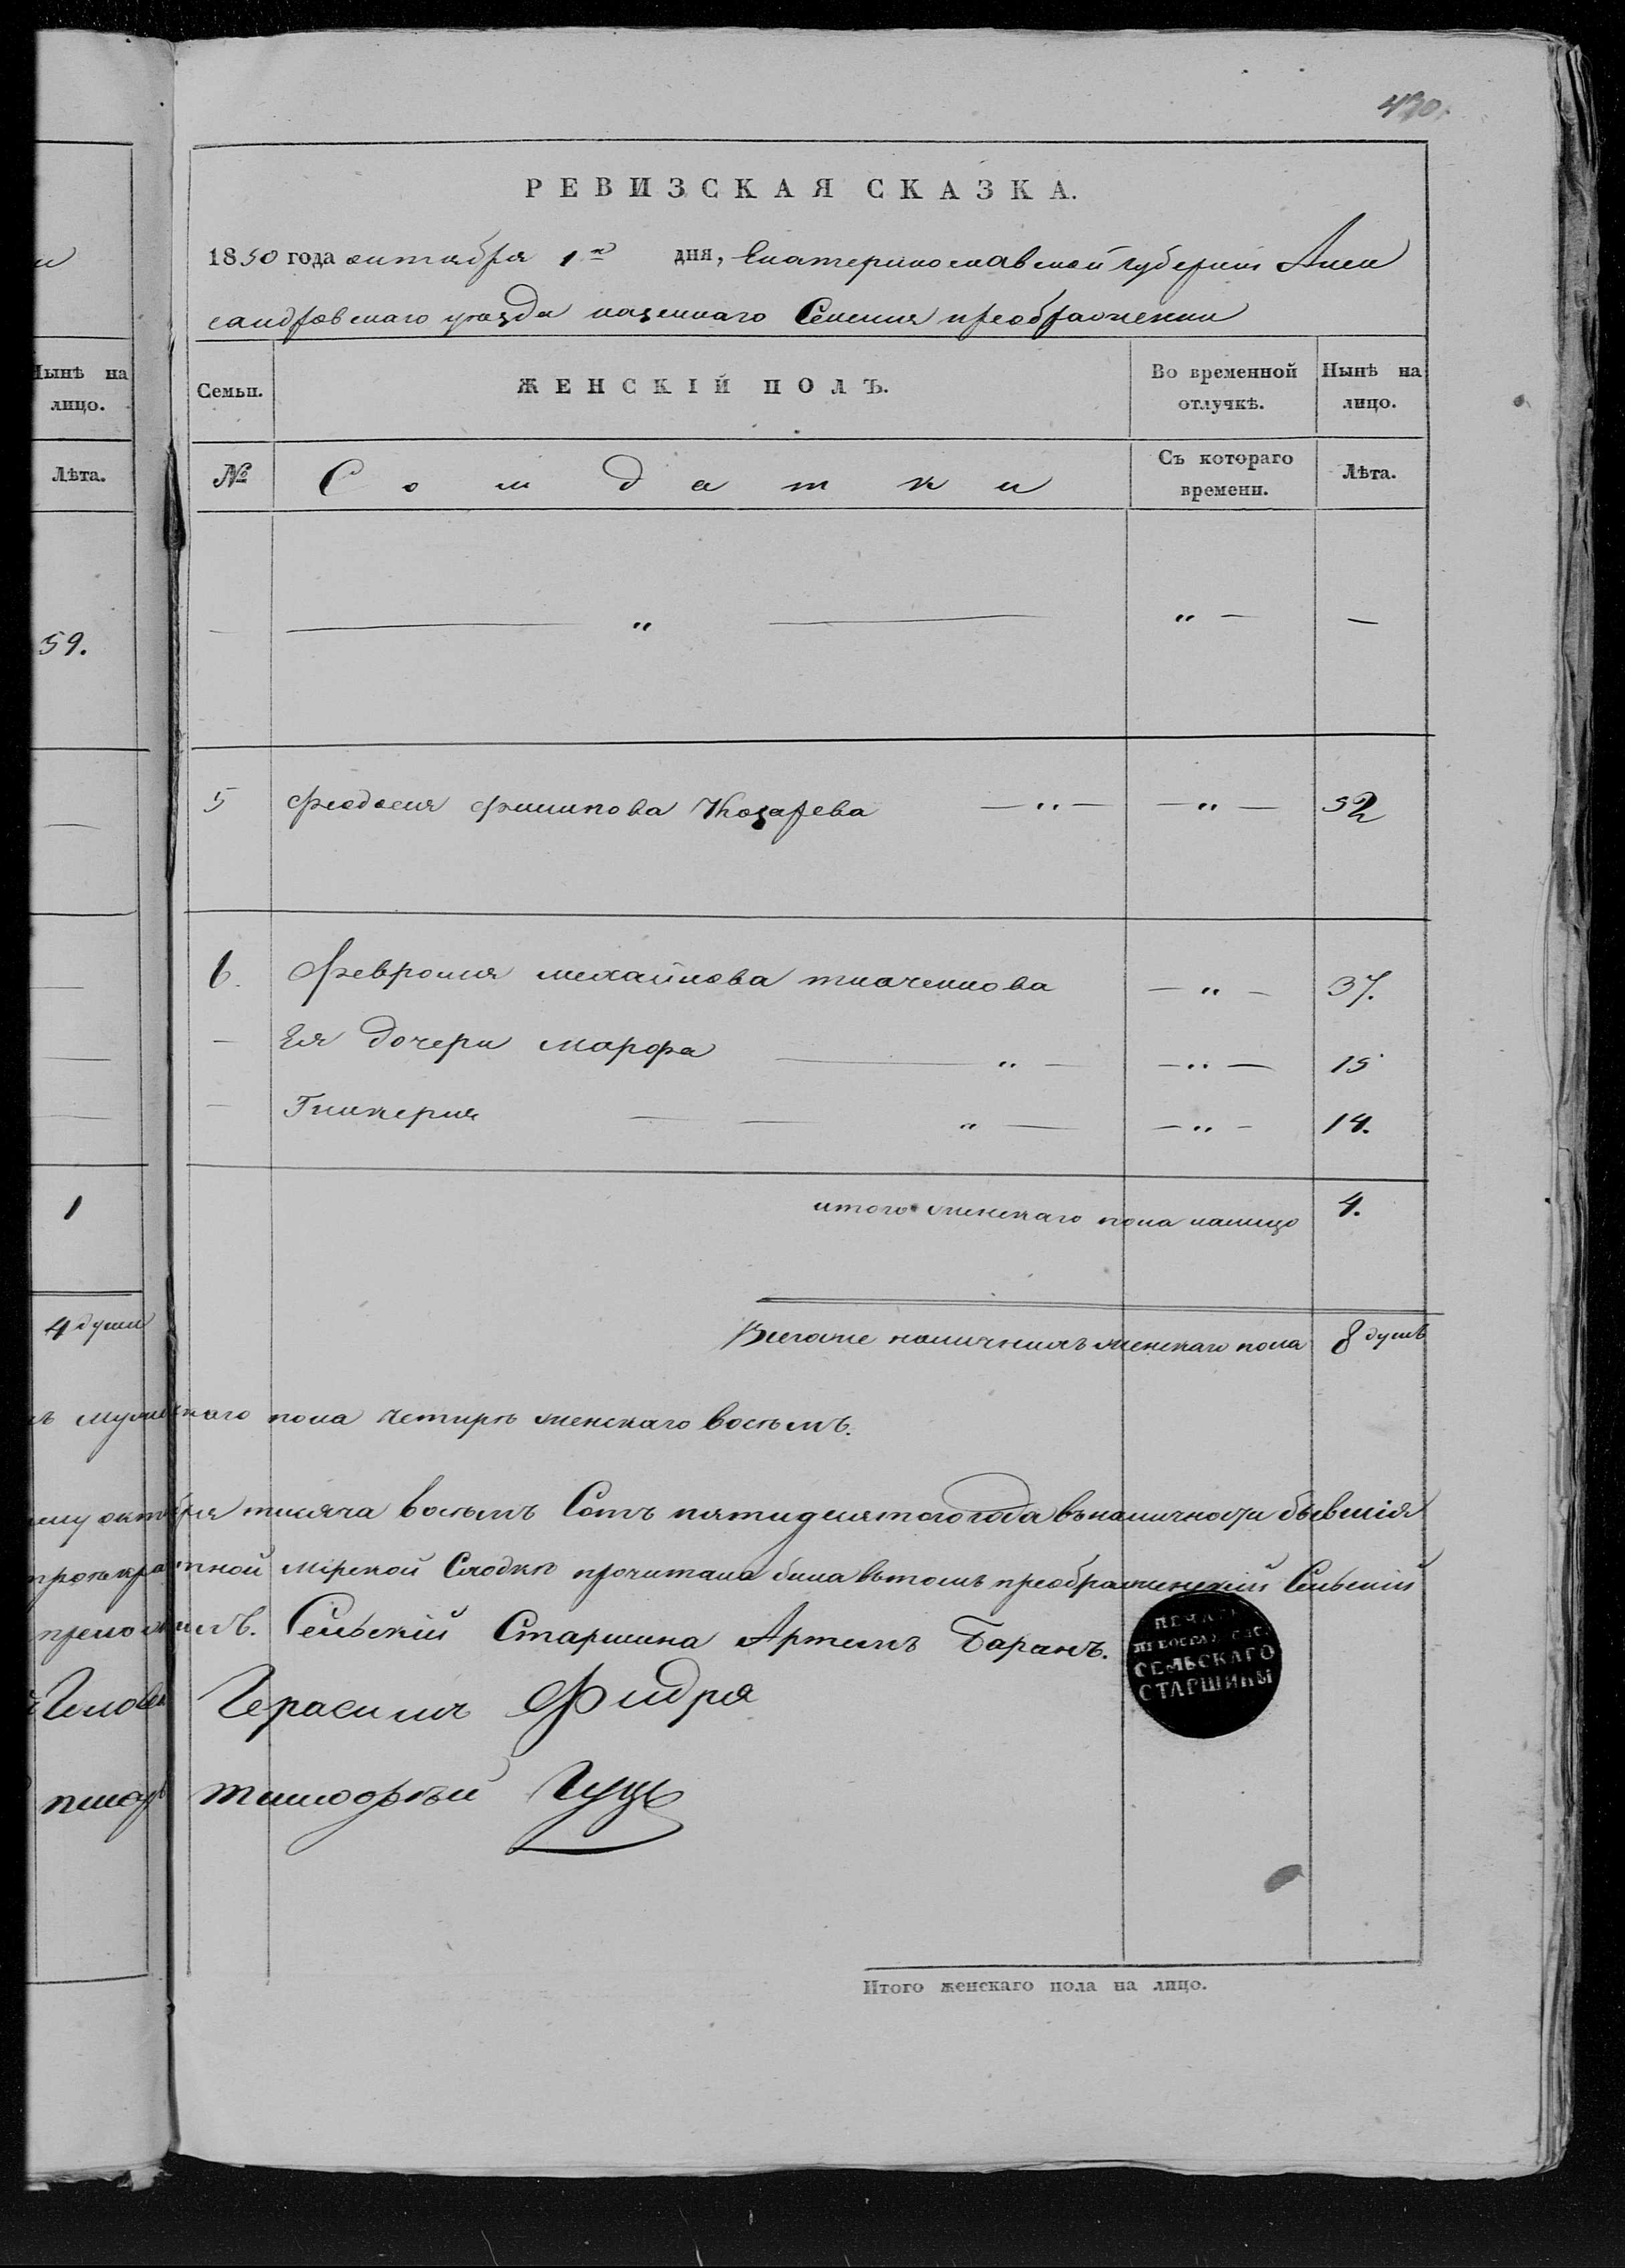 430.
РЕВИЗСКАЯ СКАЗКА.
1850 года октября 1го дня, Екатеринославской губернии Алек
сандровскаго уезда казеннаго Селения преображенки
Нынѣ на лицо.
Семьи.
ЖЕНСКІЙ ПОЛЪ.
Во временной отлучкѣ.
Нынѣ на лицо.
Лѣта.
№
Солдатки
Съ котораго времени.
Лѣта.
— „ — „ — —
59.
5 Феодосия Филипова Козарева — „ — — „ — 52
6. Феврония михайлова ткаченкова — „ — 37.
— Ея дочери марфа — „ — — „ — 15
— Гликерия — „ — — „ — 14.
1
итого женскаго пола налицо 4.
4 души
Всегоже наличнихъ женскаго пола 8 душъ
мужескаго пола четири женскаго восемъ.
октября тисяча восемъ Сотъ пятидесятого года въналичности бывшія
мірской Сходкѣ прочитана била вътомъ преображенский Сельский
Сельский Старшина Артемъ Баранъ.
ПЕЧАТЬ
СЕЛЬСКАГО
СТАРШИНЫ
Герасимъ Фидря
писарь тимофѣй Гуць
Итого женскаго пола на лицо.